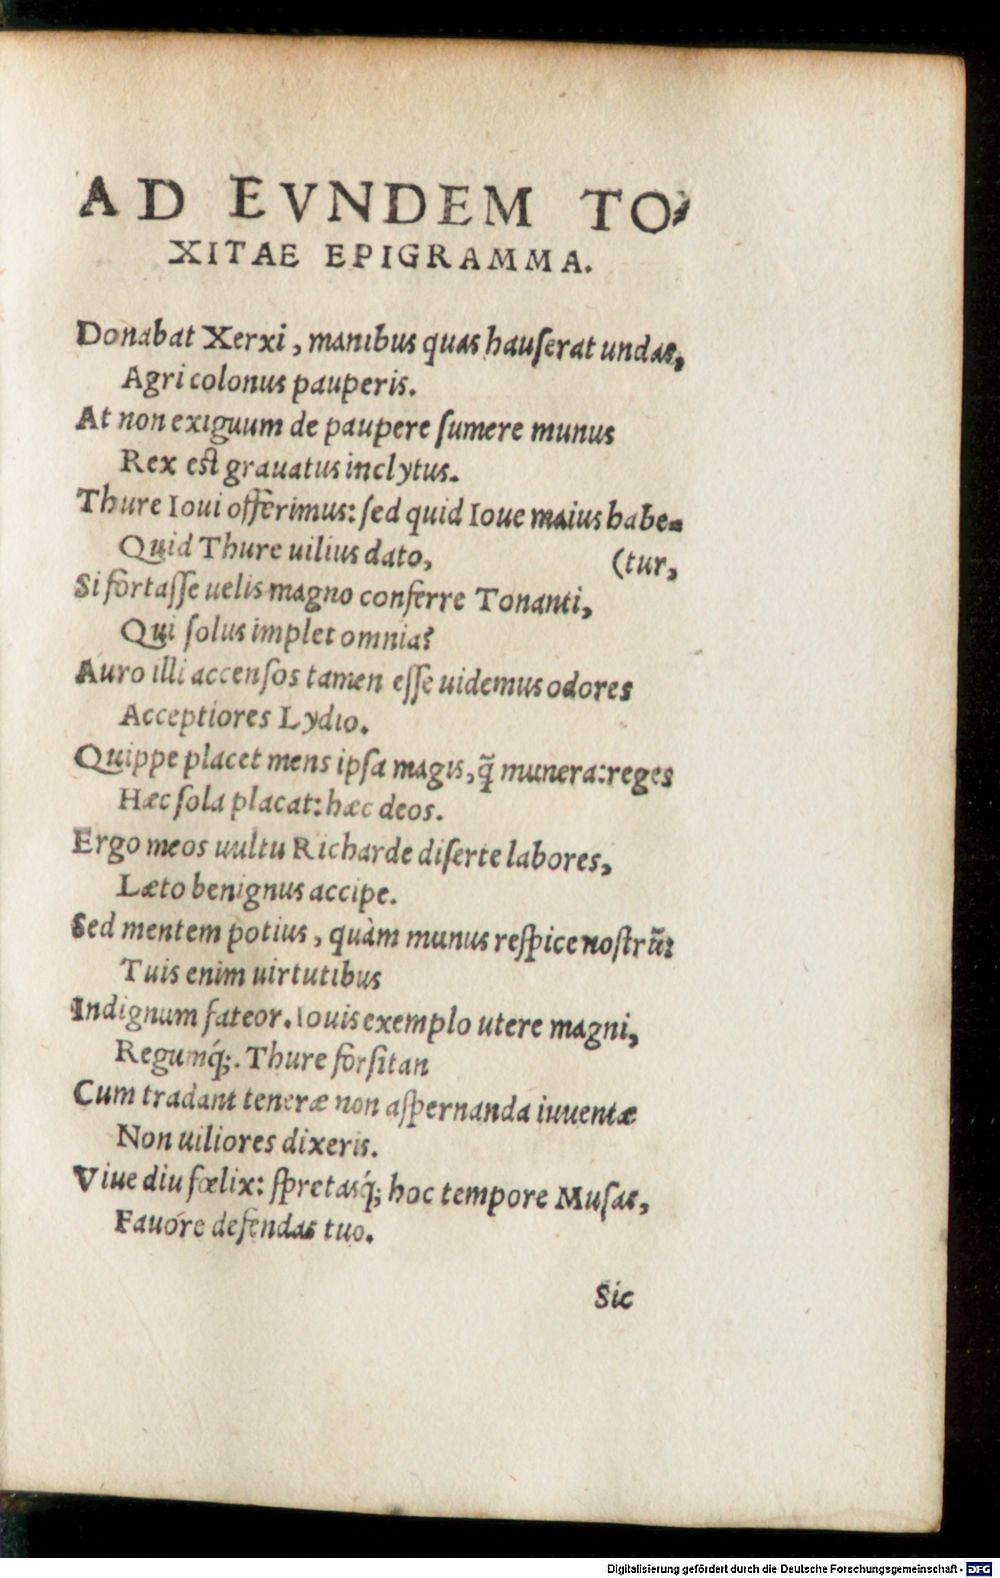 AD EVNDEM TO-
XITAE EPIGRAMMA.
Donabat Xerxi, manibus quas hauſerat undas,
Agri colonus pauperis.
At non exiguum de paupere ſumere munus
Rex eſt grauatus inclytus.
Thure Ioui offerimus: ſed quid Ioue maius habe-
Quid Thure uilius dato, (tur,
Si fortaſſe uelis magno conferre Tonanti,
Qui ſolus implet omnia?
Auro illi accenſos tamen eſſe uidemus odores
Acceptiores Lydio.
Quippe placet mens ipſa magis, q̃ munera: reges
Hæc ſola placat: hæc deos.
Ergo meos uultu Richarde diſerte labores,
Læto benignus accipe.
Sed mentem potius, quàm munus reſpice noſtrũ:
Tuis enim uirtutibus
Indignum fateor. Iouis exemplo utere magni,
Regumq́;. Thure forſitan
Cum tradant teneræ non aſpernanda iuuentæ
Non uiliores dixeris.
Viue diu fœlix: ſpretasq́; hoc tempore Muſas,
Fauore defendas tuo.
Sic
Digitalisierung gefördert durch die Deutsche Forschungsgemeinschaft - DFG